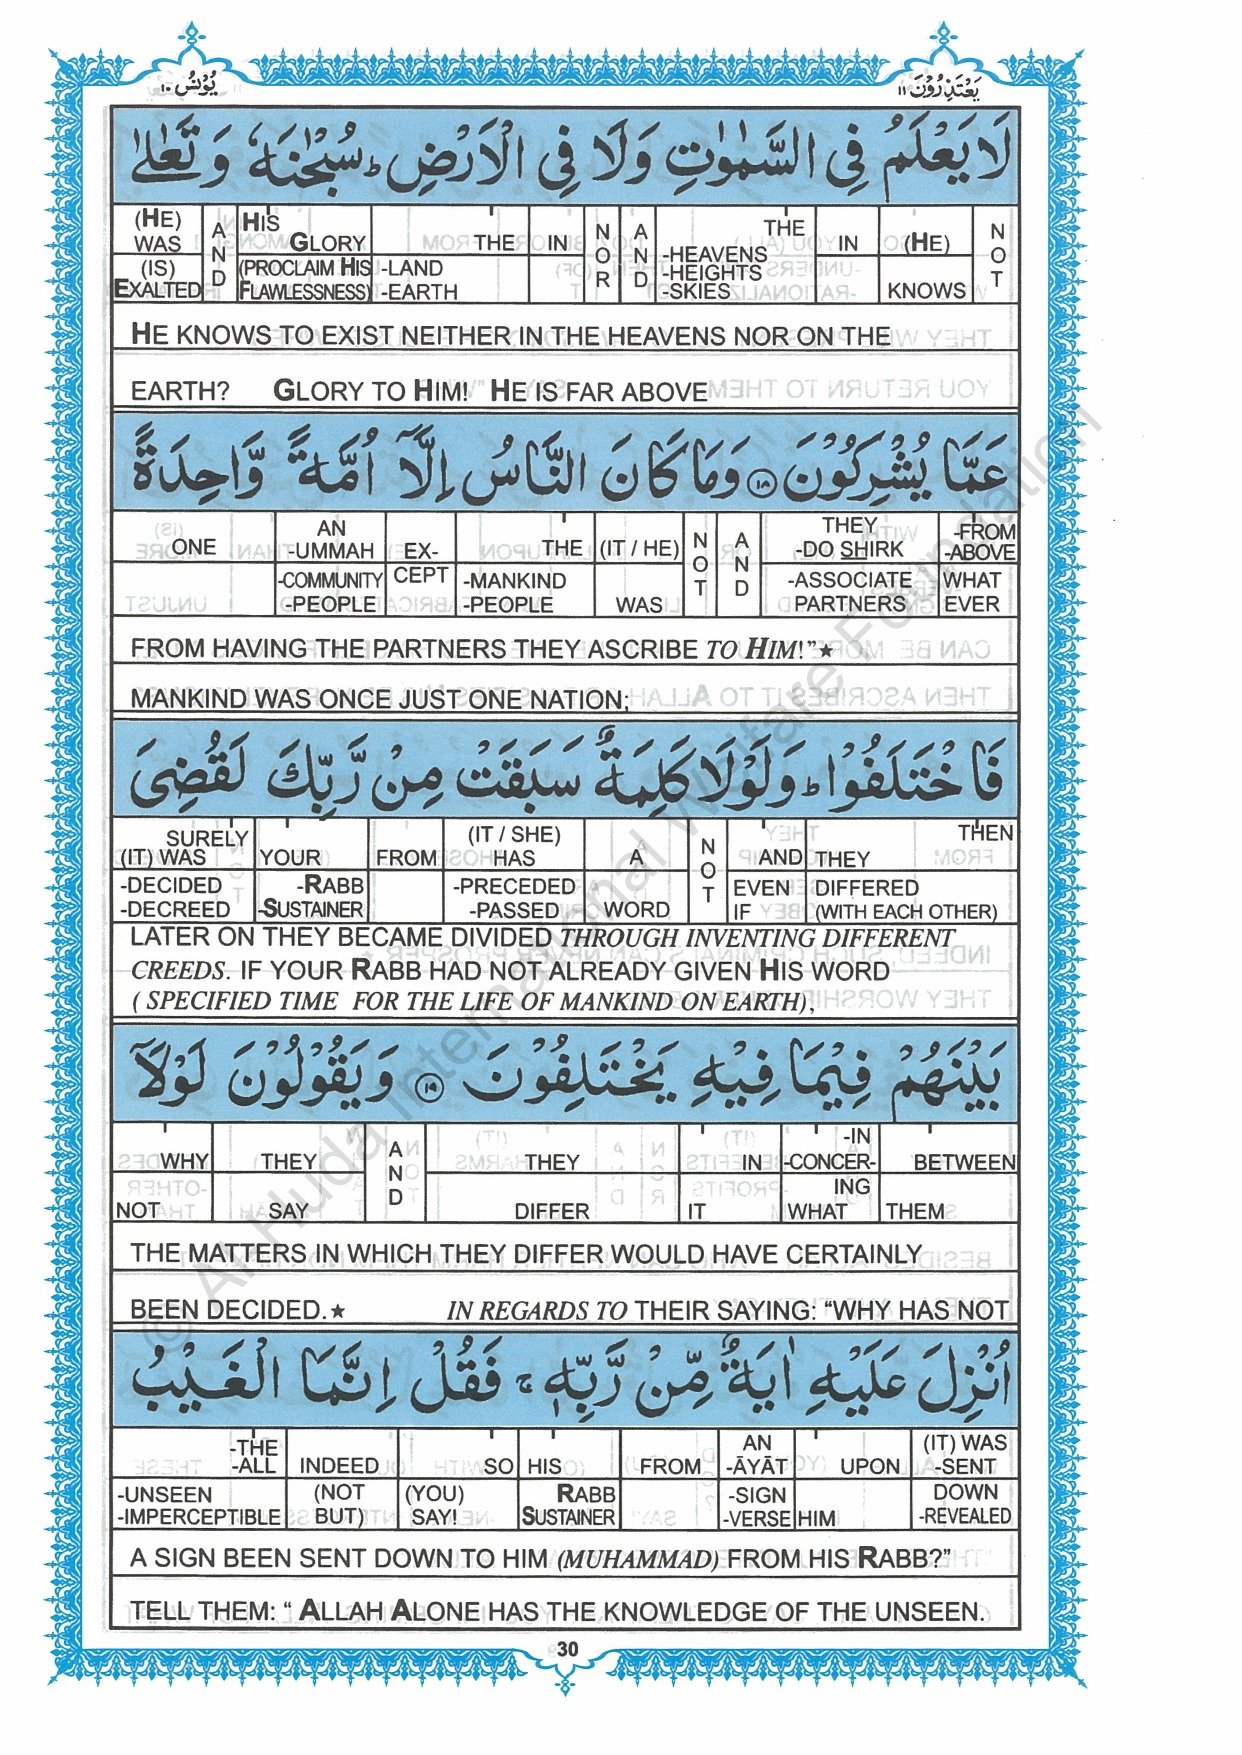 يَعْتَذِرُوْنَ ١١
يُوْنُسُ ١٠
لَا يَعْلَمُ فِى السَّمٰوٰتِ وَلَا فِى الْاَرْضِ ؕ سُبْحٰنَهٗ وَتَعٰلٰى
(HE) WAS AND HIS GLORY THE IN NOR AND THE IN (HE) NOT
(IS) EXALTED (PROCLAIM HIS FLAWLESSNESS) -LAND -EARTH -HEAVENS -HEIGHTS -SKIES KNOWS
HE KNOWS TO EXIST NEITHER IN THE HEAVENS NOR ON THE
EARTH? GLORY TO HIM! HE IS FAR ABOVE
عَمَّا يُشْرِكُوْنَ ﴿١٨﴾ وَمَا كَانَ النَّاسُ اِلَّاۤ اُمَّةً وَّاحِدَةً
ONE AN -UMMAH EX- THE (IT / HE) NOT AND THEY -DO SHIRK -FROM -ABOVE
-COMMUNITY -PEOPLE CEPT -MANKIND -PEOPLE WAS -ASSOCIATE PARTNERS WHAT EVER
FROM HAVING THE PARTNERS THEY ASCRIBE TO HIM!”★
MANKIND WAS ONCE JUST ONE NATION;
فَاخْتَلَفُوْا ؕ وَلَوْلَا كَلِمَةٌ سَبَقَتْ مِنْ رَّبِّكَ لَقُضِىَ
SURELY (IT) WAS YOUR FROM (IT / SHE) HAS A NOT AND THEY THEN
-DECIDED -DECREED -RABB -SUSTAINER -PRECEDED -PASSED WORD EVEN IF DIFFERED (WITH EACH OTHER)
LATER ON THEY BECAME DIVIDED THROUGH INVENTING DIFFERENT
CREEDS. IF YOUR RABB HAD NOT ALREADY GIVEN HIS WORD
( SPECIFIED TIME FOR THE LIFE OF MANKIND ON EARTH),
بَيْنَهُمْ فِيْمَا فِيْهِ يَخْتَلِفُوْنَ ﴿١٩﴾ وَيَقُوْلُوْنَ لَوْلَاۤ
WHY THEY AND THEY IN -IN -CONCER- BETWEEN
NOT SAY DIFFER IT ING WHAT THEM
THE MATTERS IN WHICH THEY DIFFER WOULD HAVE CERTAINLY
BEEN DECIDED.★ IN REGARDS TO THEIR SAYING: “WHY HAS NOT
اُنْزِلَ عَلَيْهِ اٰيَةٌ مِّنْ رَّبِّهٖ ۚ فَقُلْ اِنَّمَا الْغَيْبُ
-THE -ALL INDEED SO HIS FROM AN -ĀYĀT UPON (IT) WAS -SENT
-UNSEEN -IMPERCEPTIBLE (NOT BUT) (YOU) SAY! RABB SUSTAINER -SIGN -VERSE HIM DOWN -REVEALED
A SIGN BEEN SENT DOWN TO HIM (MUHAMMAD) FROM HIS RABB?”
TELL THEM: “ ALLAH ALONE HAS THE KNOWLEDGE OF THE UNSEEN.
30
© Al Huda International Welfare Foundation